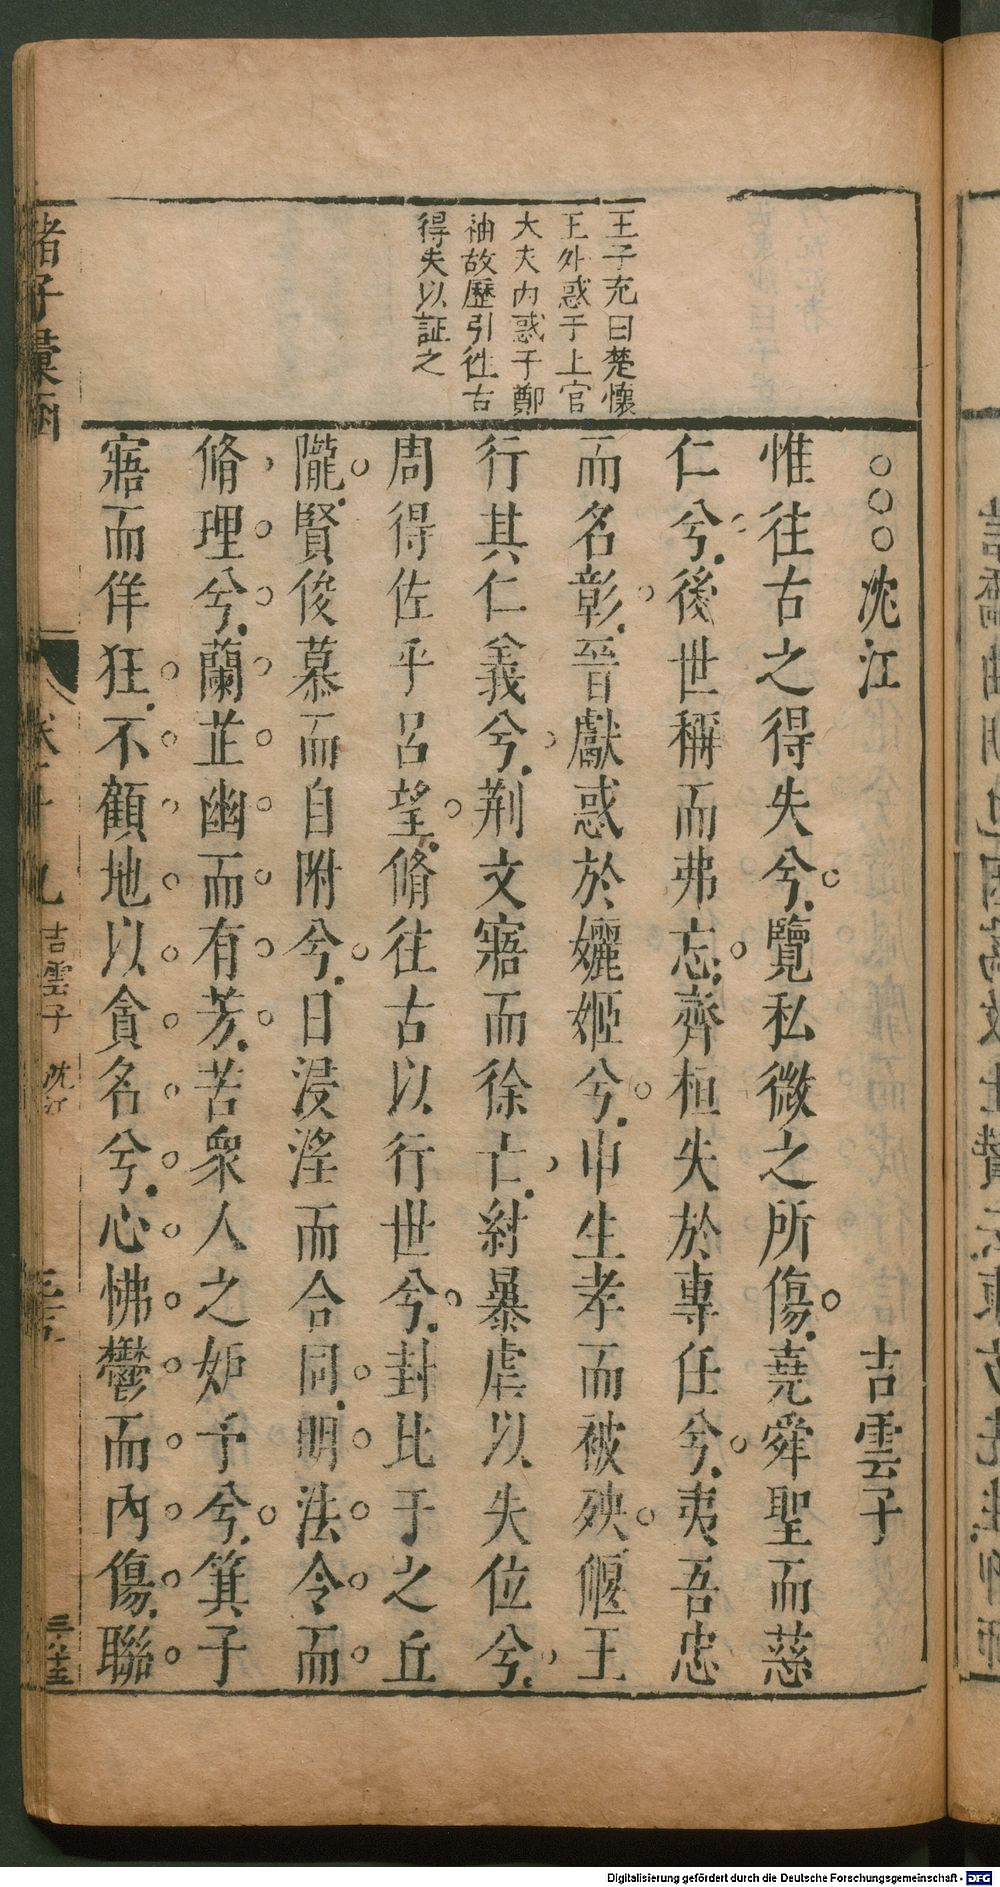 王子充曰楚懷
王外惑于上官
大夫內惑于鄭
袖故歷引徃古
得失以証之
○○○沈江
吉雲子
惟往古之得失兮覽私微之所傷堯舜聖而慈
仁兮後世稱而弗忘齊桓失於專任兮夷吾忠
而名彰晉獻惑於孋姬兮申生孝而被殃偃王
行其仁義兮荆文寤而徐亡紂暴虐以失位兮
周得佐乎呂望脩往古以行世兮封比干之丘
隴賢俊慕而自附兮日浸淫而合同明法令而
脩理兮蘭芷幽而有芳苦衆人之妒予兮箕子
寤而佯狂不顧地以貪名兮心怫鬱而內傷聯
諸子彙函
卷十九
吉雲子 沈江
Digitalisierung gefördert durch die Deutsche Forschungsgemeinschaft - DFG